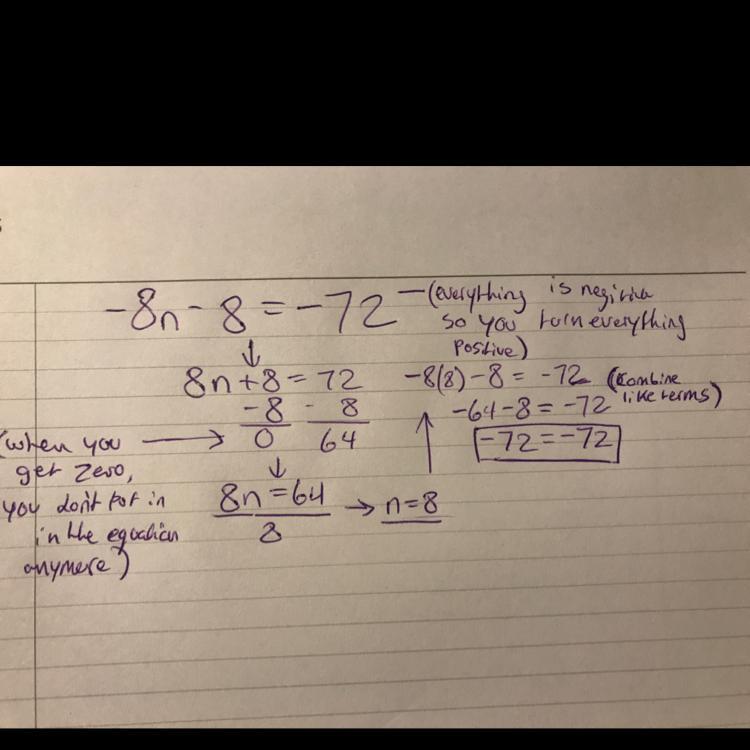 -8n - 8 = -72 — (everything is negitive
so you turn everything
positive)
↓
8n + 8 = 72
-8 - 8
0 64
(when you →
get zero,
you don't put in
in the equation
anymore)
↓
8n = 64 → n = 8
8
-8(8) - 8 = -72 (combine
like terms)
-64 - 8 = -72
-72 = -72
↑